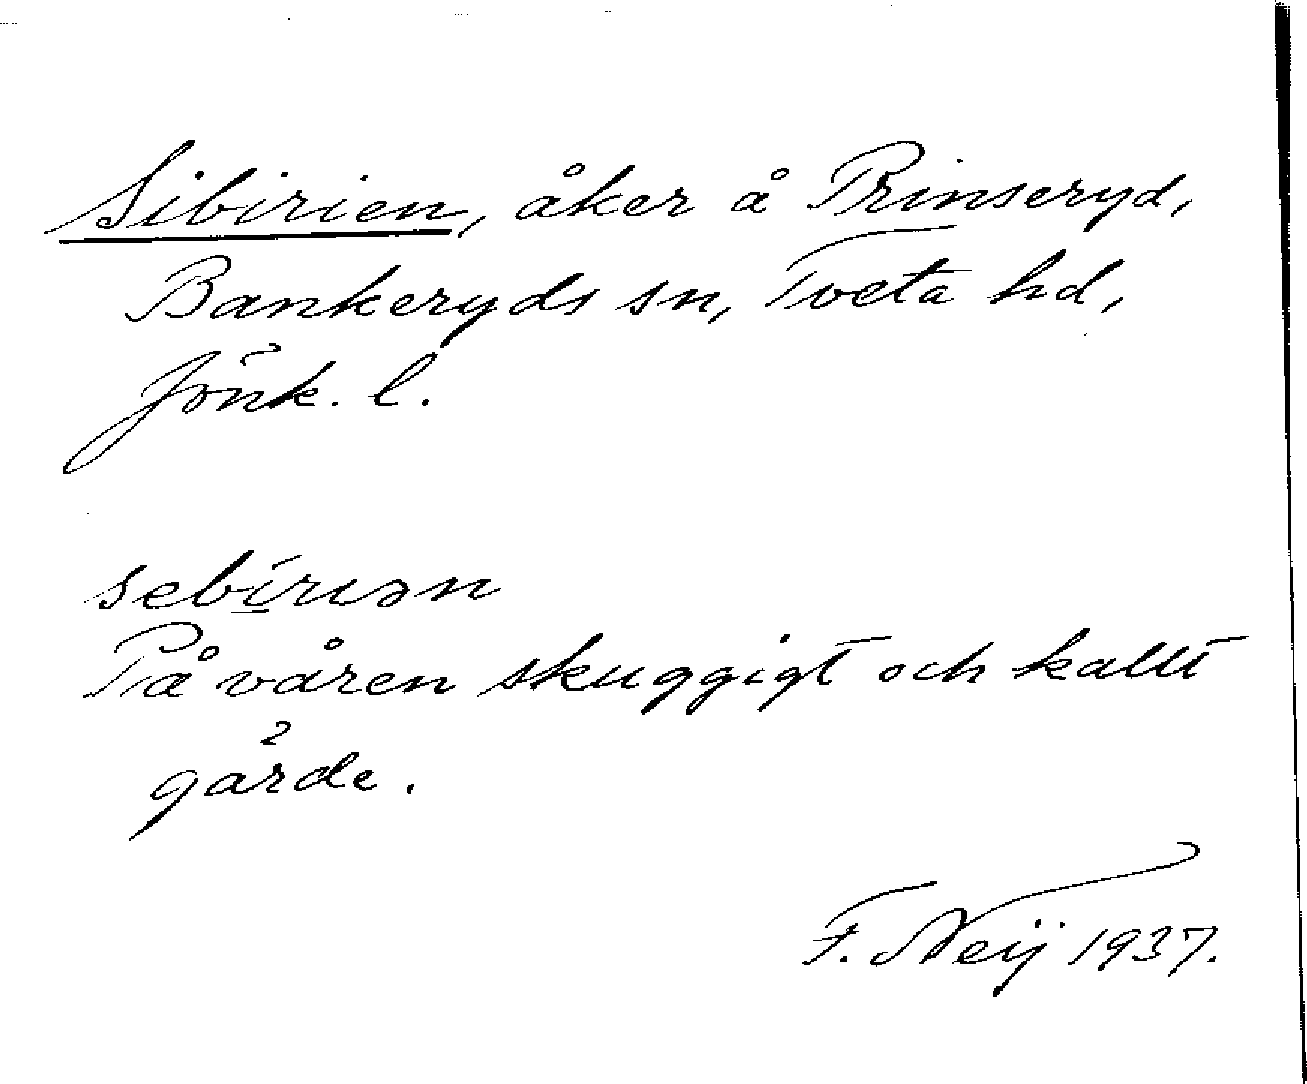 Sibirien, åker å Prinseryd,
Bankeryds sn, Tveta hd,
Jönk. l.
sebíriən
På våren skuggigt och kallt
gärde.
F. Neij 1937.